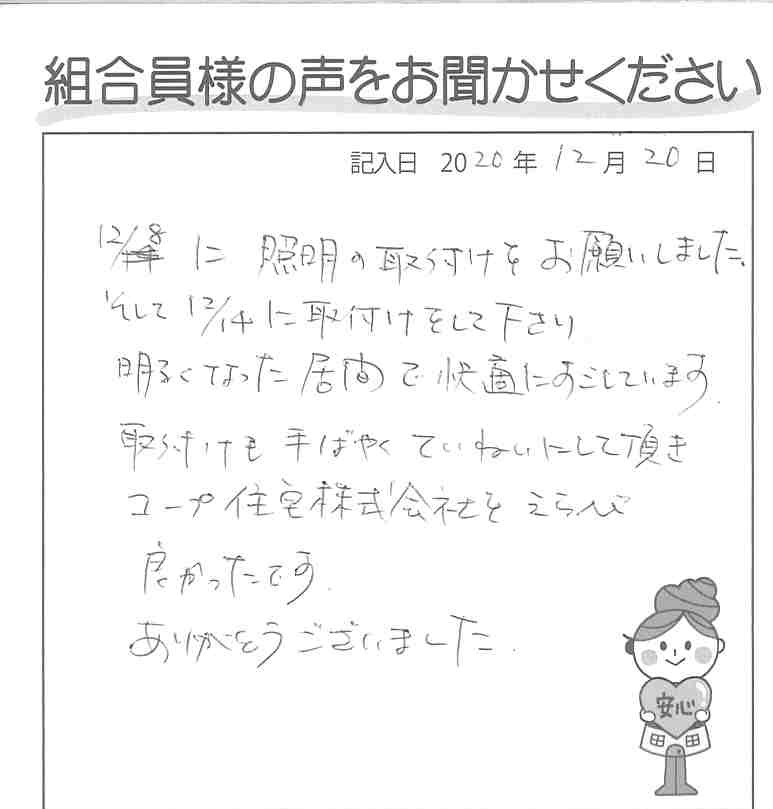 組合員様の声をお聞かせください
記入日 2020年 12月 20日
12/8 に 照明の取付けを お願いしました。
そして 12/14に取付けをして下さり
明るくなった居間で快適にすごしています。
取付けも 手ばやく ていねいにして頂き
コープ住宅株式会社を えらび
良かったです。
ありがとうございました。
安心